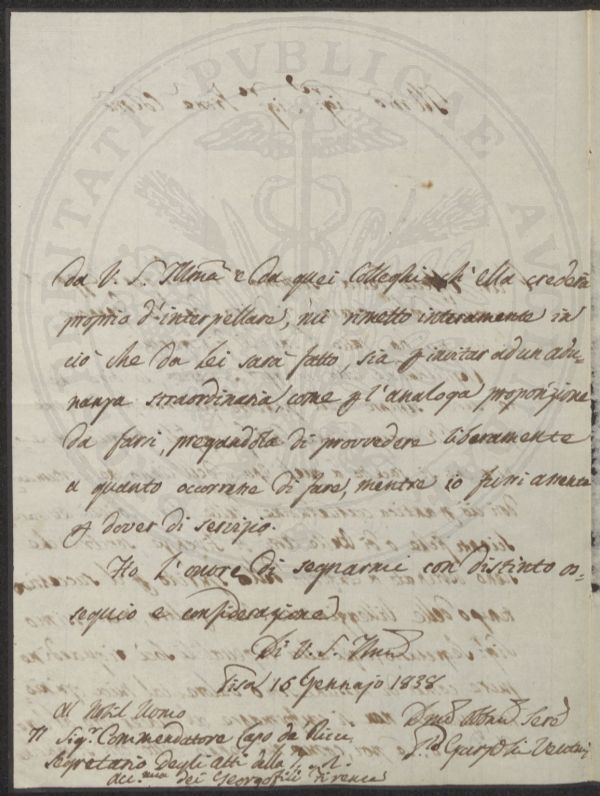 UTILITATI PUBLICAE
da V. S. Illma e da quei Colleghi ch' ella crederà
proprio d' interpellare, mi rimetto interamente in
ciò che da Lei sarà fatto, sia p invitar ad un adu=
nanza straordinaria, come p l'analoga proposizione
da farsi, pregandola di provvedere liberamente
a quanto occorresse di fare, mentre io
p dover di servizio.
Ho l' onore di segnarmi con distinto os=
sequio e considerazione
Di V. S. Illma
Pisa 16 Gennajo 1838
Al Nobil Uomo
Il Sigr. Commendatore Capo
Segretario degli atti della I. e R.
Acc.mia dei Georgofili Firenze